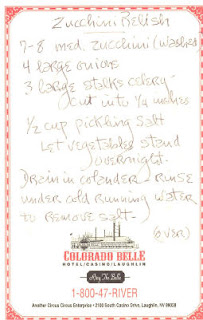 Zucchini Relish
7-8 med. zucchini (washed
4 large onions
3 large stalks celery
cut into 1/4 inches
1/2 cup pickling salt
Let vegetables stand
overnight.
Drain in colander. Rinse
under cold running water
to remove salt.
(over)
COLORADO BELLE
HOTEL/CASINO/LAUGHLIN
1-800-47-RIVER
Another Circus Circus Enterprise • 2100 South Casino Drive, Laughlin, NV 89029